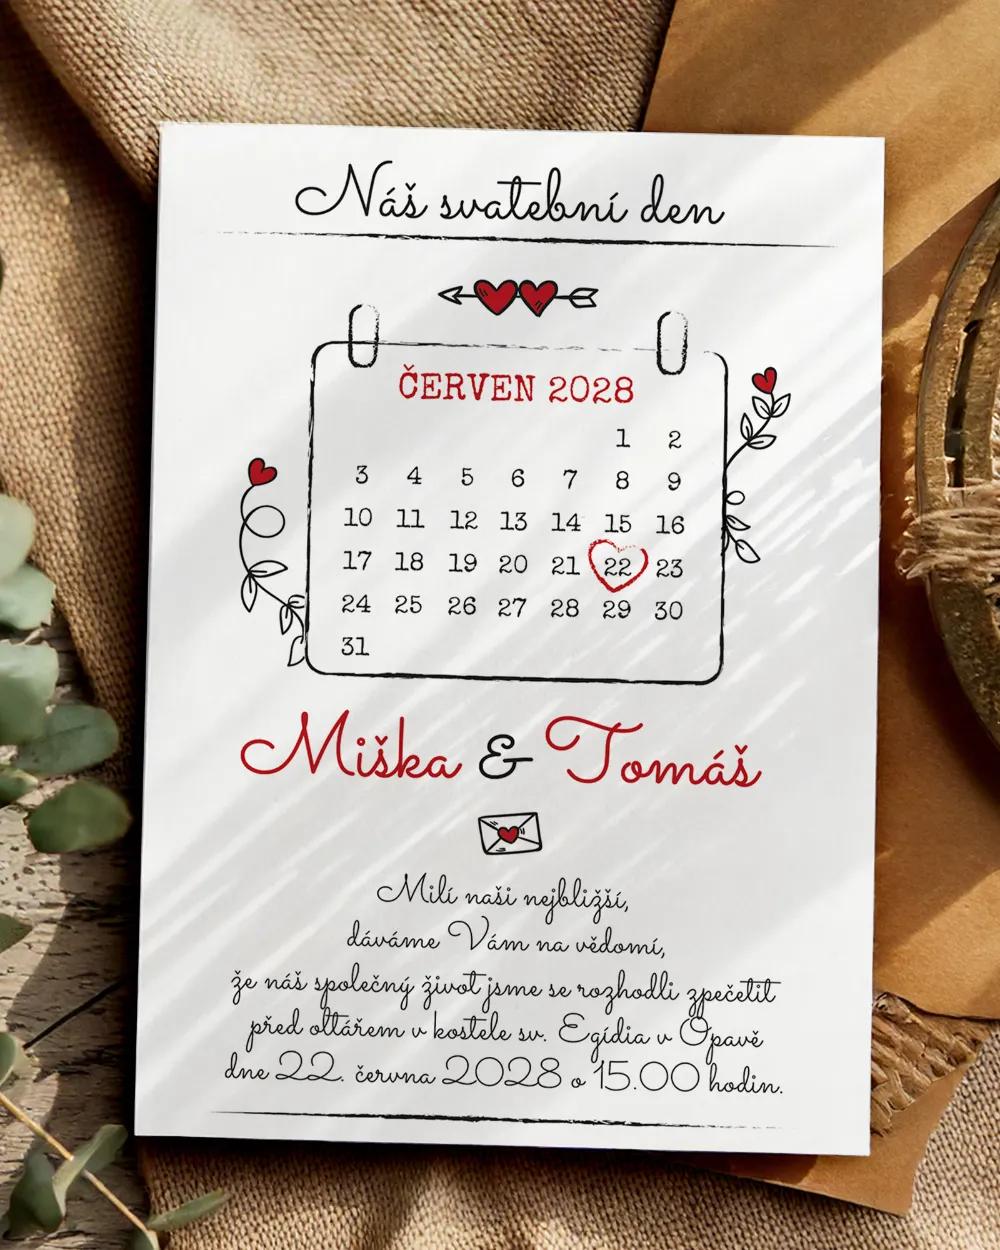 Náš svatební den
ČERVEN 2028
1 2
3 4 5 6 7 8 9
10 11 12 13 14 15 16
17 18 19 20 21 22 23
24 25 26 27 28 29 30
31
Miška & Tomáš
Milí naši nejbližší,
dáváme Vám na vědomí,
že náš společný život jsme se rozhodli zpečetit
před oltářem v kostele sv. Egídia v Opavě
dne 22. června 2028 o 15.00 hodin.